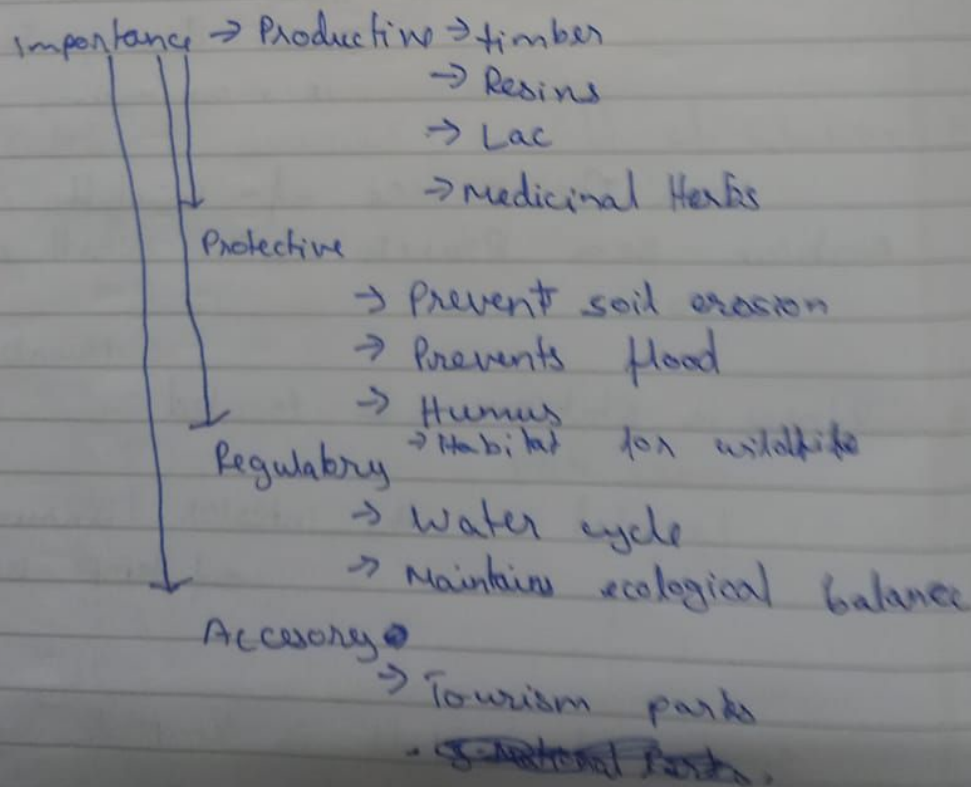 Importance → Productive → timber
→ Resins
→ Lac
→ Medicinal Herbs
Protective
→ Prevent soil erosion
→ Prevents flood
→ Humus
→ Habitat for wildlife
Regulatory
→ Water cycle
→ Maintains ecological balance
Accesory
→ Tourism parks